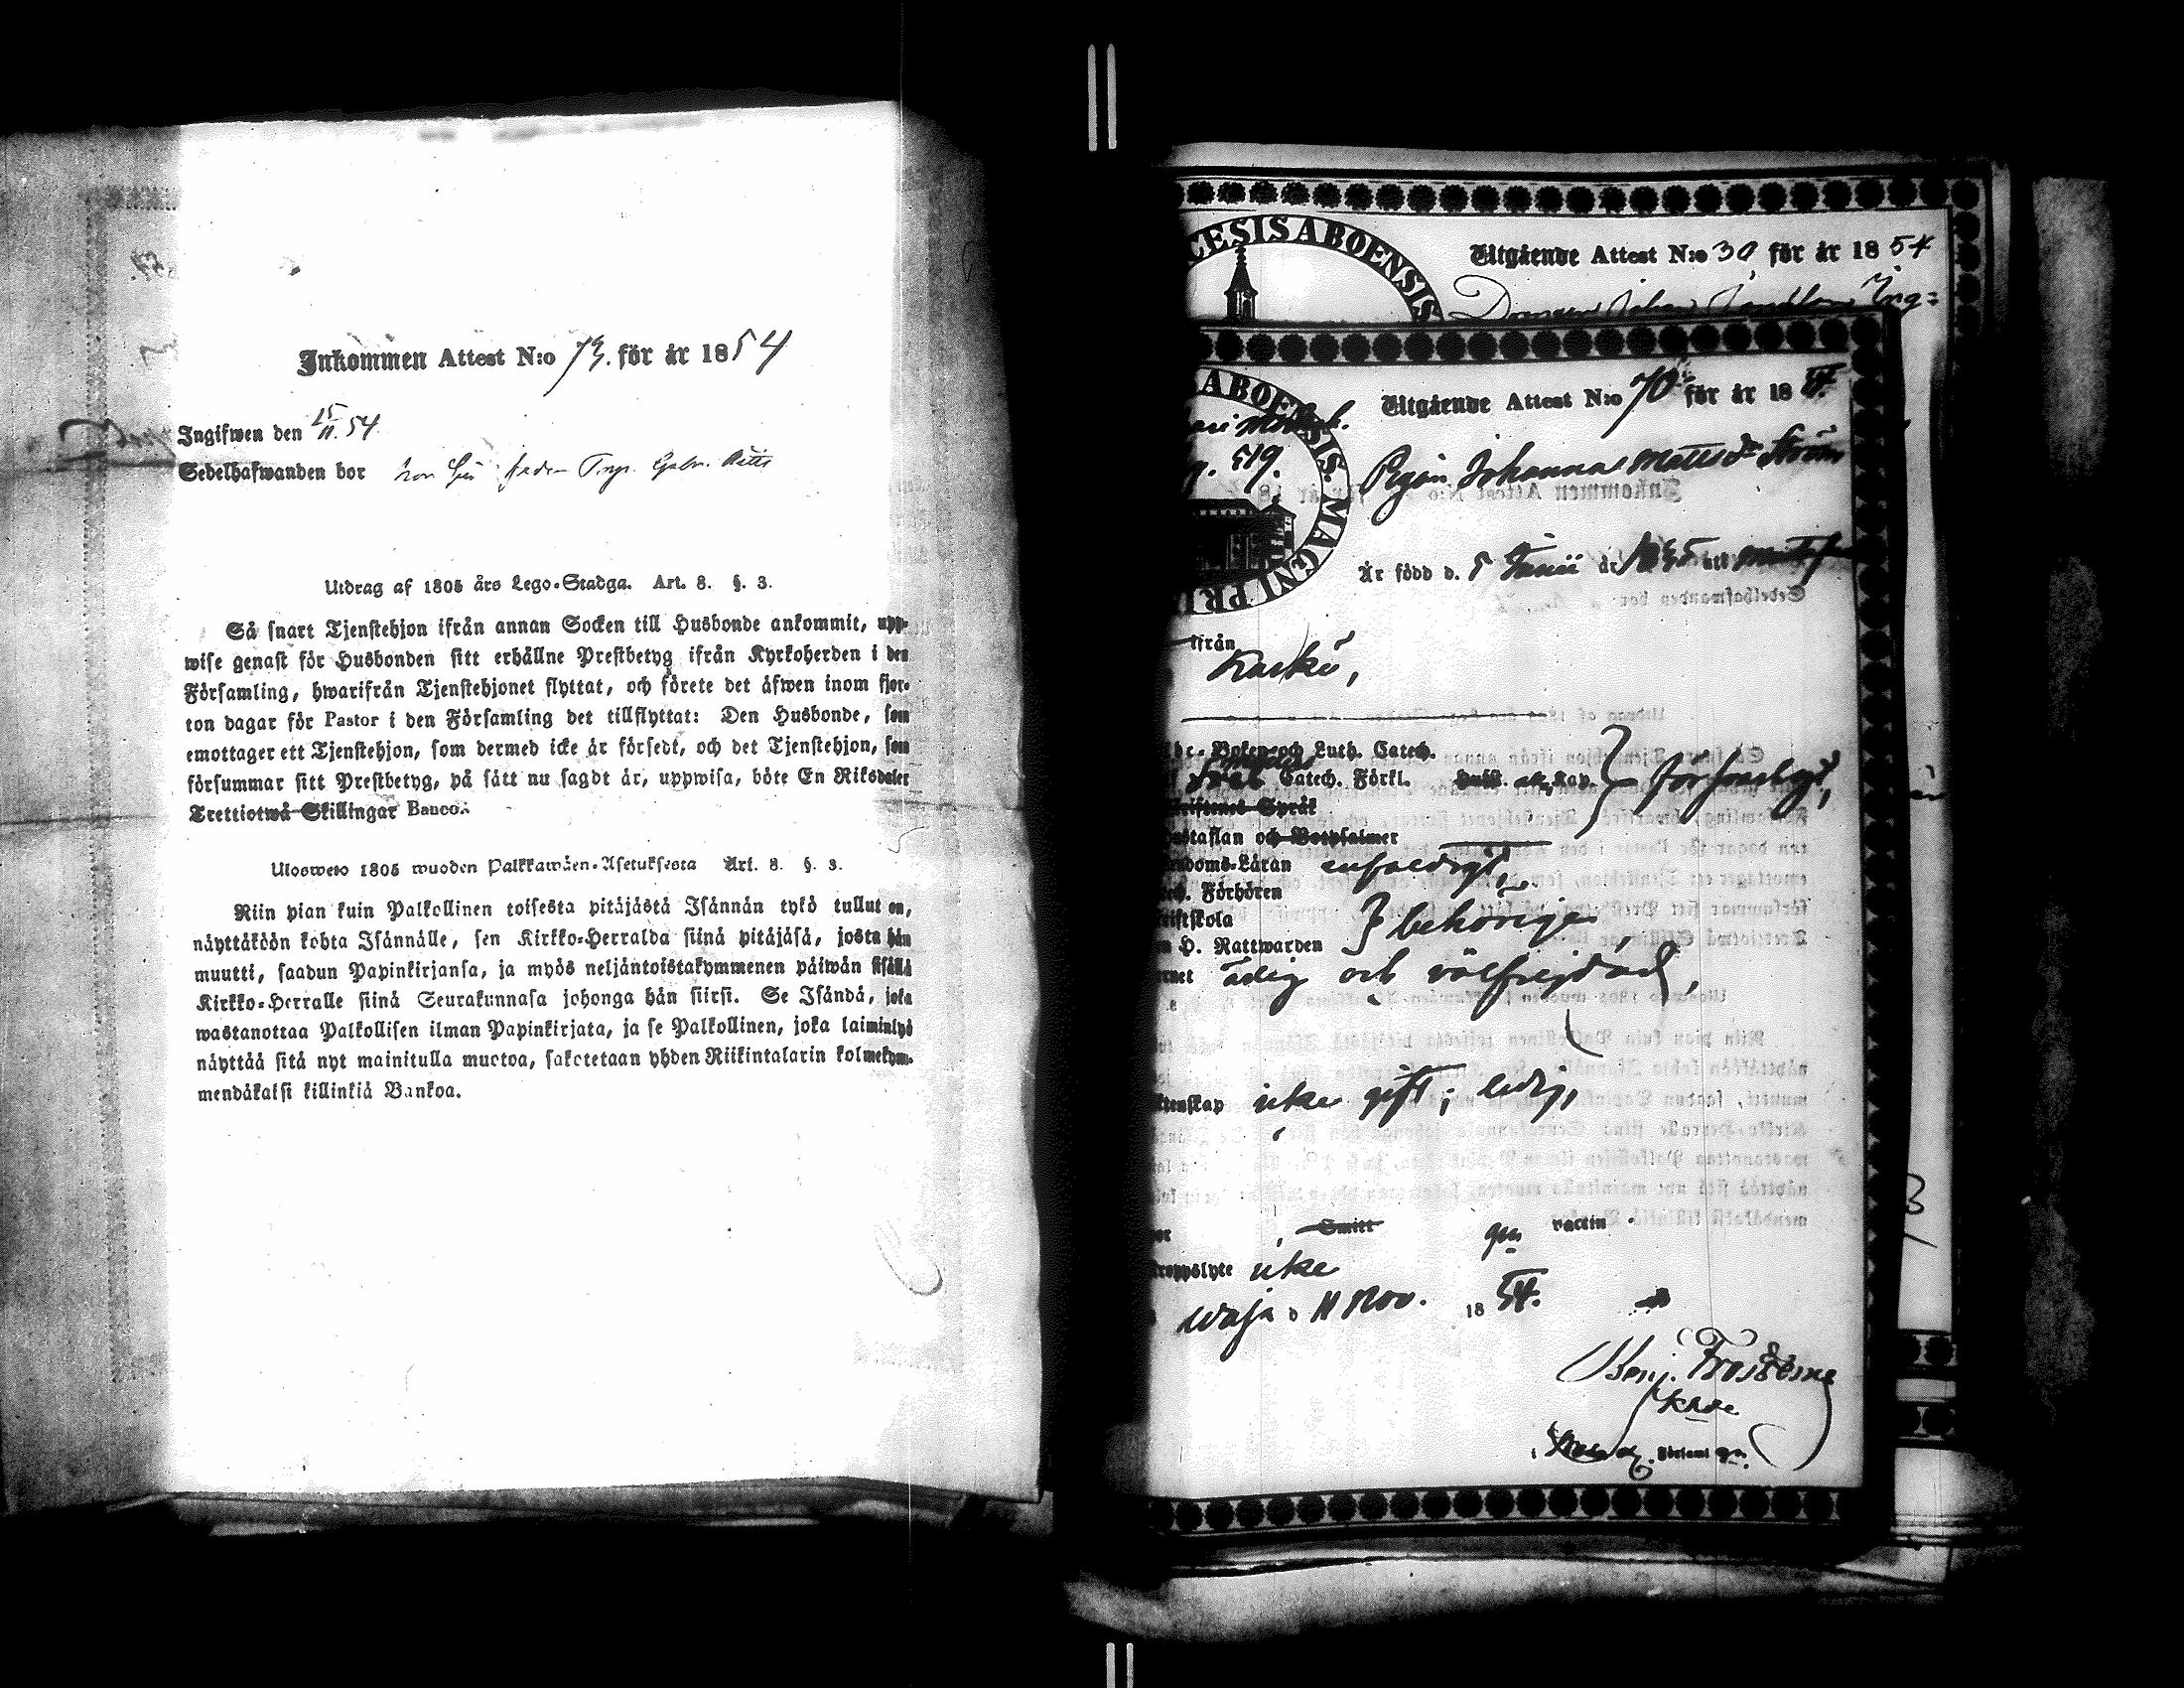 Inkommen Attest N:o 73. för år 1854
Ingifwen den 15/11. 54.
Sedelhafwanden bor hos
Utdrag af 1805 års Lego-Stadga. Art. 8. §. 3.
Så snart Tjenstehjon ifrån annan Socken till Husbonde ankommit, upp-
wise genast för Husbonden sitt erhållne Prestbetyg ifrån Kyrkoherden i den
Församling, hwarifrån Tjenstehjonet flyttat, och förete det äfwen inom fjor-
ton dagar för Pastor i den Församling det tillflyttat: Den Husbonde, som
emottager ett Tjenstehjon, som dermed icke är försedt, och det Tjenstehjon, som
försummar sitt Prestbetyg, på sätt nu sagdt är, uppwisa, böte En Riksdaler
Trettiotwå Skillingar Banco.
Ulosweto 1805 wuoden Palkkawäen-Asetuksesta Art. 8. §. 3.
Niin pian kuin Palkollinen toisesta pitäjästä Isännän tykö tullut on,
näyttäköön kohta Isännälle, sen Kirkko-Herralda siinä pitäjäsä, josta hän
muutti, saadun Papinkirjansa, ja myös neljäntoistakymmenen päiwän sisällä
Kirkko-Herralle siinä Seurakunnasa johonga hän siirsi. Se Isändä, joka
wastanottaa Palkollisen ilman Papinkirjata, ja se Palkollinen, joka laiminlyö
näyttää sitä nyt mainitulla muotoa, saketetaan yhden Riikintalarin kolmekym-
mendäkaksi killinkiä Bankoa.
CESIS ABOENSIS
Utgående Attest N:o 30 för år 1854
Johan
ABOENSIS. MAGNI PRI
Utgående Attest N:o 70 för år 1854.
p. 519.
Pigan Johanna Mattsdr Ström
Är född d. 5 Junii år 1835 att
ifrån
Kaskö,
Abc-Boken och Luth. Catech.
Catech. Förkl. Kap. } försvarligt,
Skriftenes Språk
Hustaflan och Botpsalmer
endoms-Läran enfaldigt,
ech. Förhören
riftskola } behörigen,
n H. Nattwarden
rnet ärlig och välfrejdad,
ktenskap icke gift; ledig,
por Smitt gm vaccin
kroppslyte icke
d 11 Nov. 1854.
Benj. Frosterus
Khde
i Församl gn.